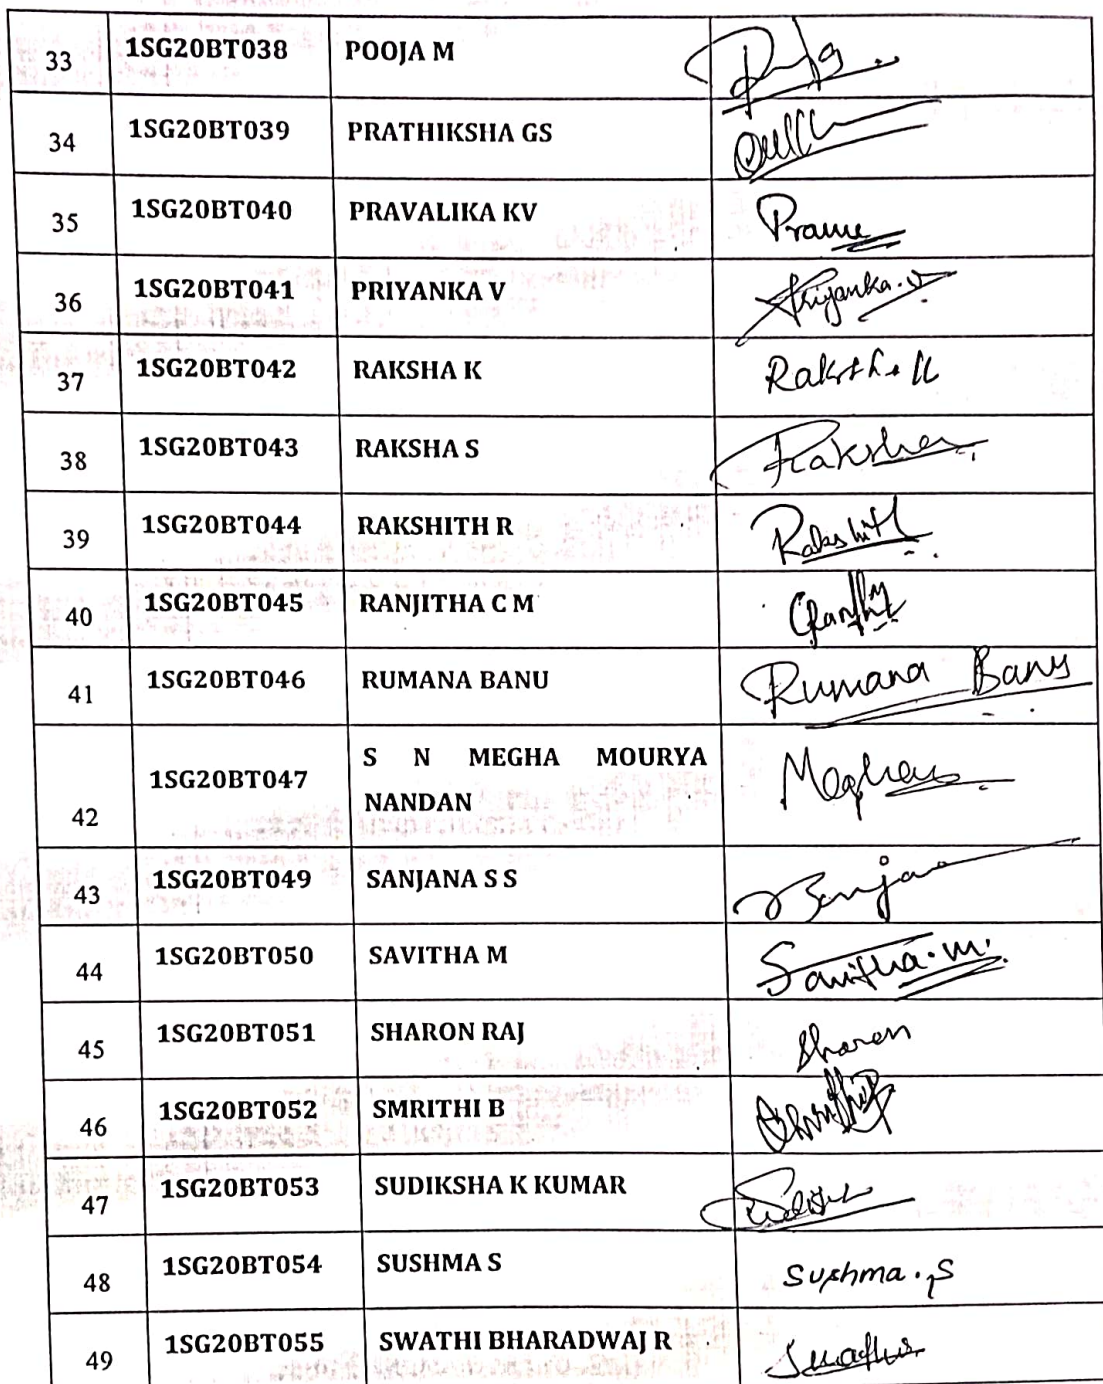 33 1SG20BT038 POOJA M
34 1SG20BT039 PRATHIKSHA GS
35 1SG20BT040 PRAVALIKA KV
36 1SG20BT041 PRIYANKA V Priyanka.V
37 1SG20BT042 RAKSHA K Raksha K
38 1SG20BT043 RAKSHA S Raksha
39 1SG20BT044 RAKSHITH R Rakshith
40 1SG20BT045 RANJITHA C M
41 1SG20BT046 RUMANA BANU Rumana Banu
42 1SG20BT047 S N MEGHA MOURYA
NANDAN
43 1SG20BT049 SANJANA S S
44 1SG20BT050 SAVITHA M Savitha.M.
45 1SG20BT051 SHARON RAJ Sharon
46 1SG20BT052 SMRITHI B
47 1SG20BT053 SUDIKSHA K KUMAR
48 1SG20BT054 SUSHMA S Sushma.S
49 1SG20BT055 SWATHI BHARADWAJ R